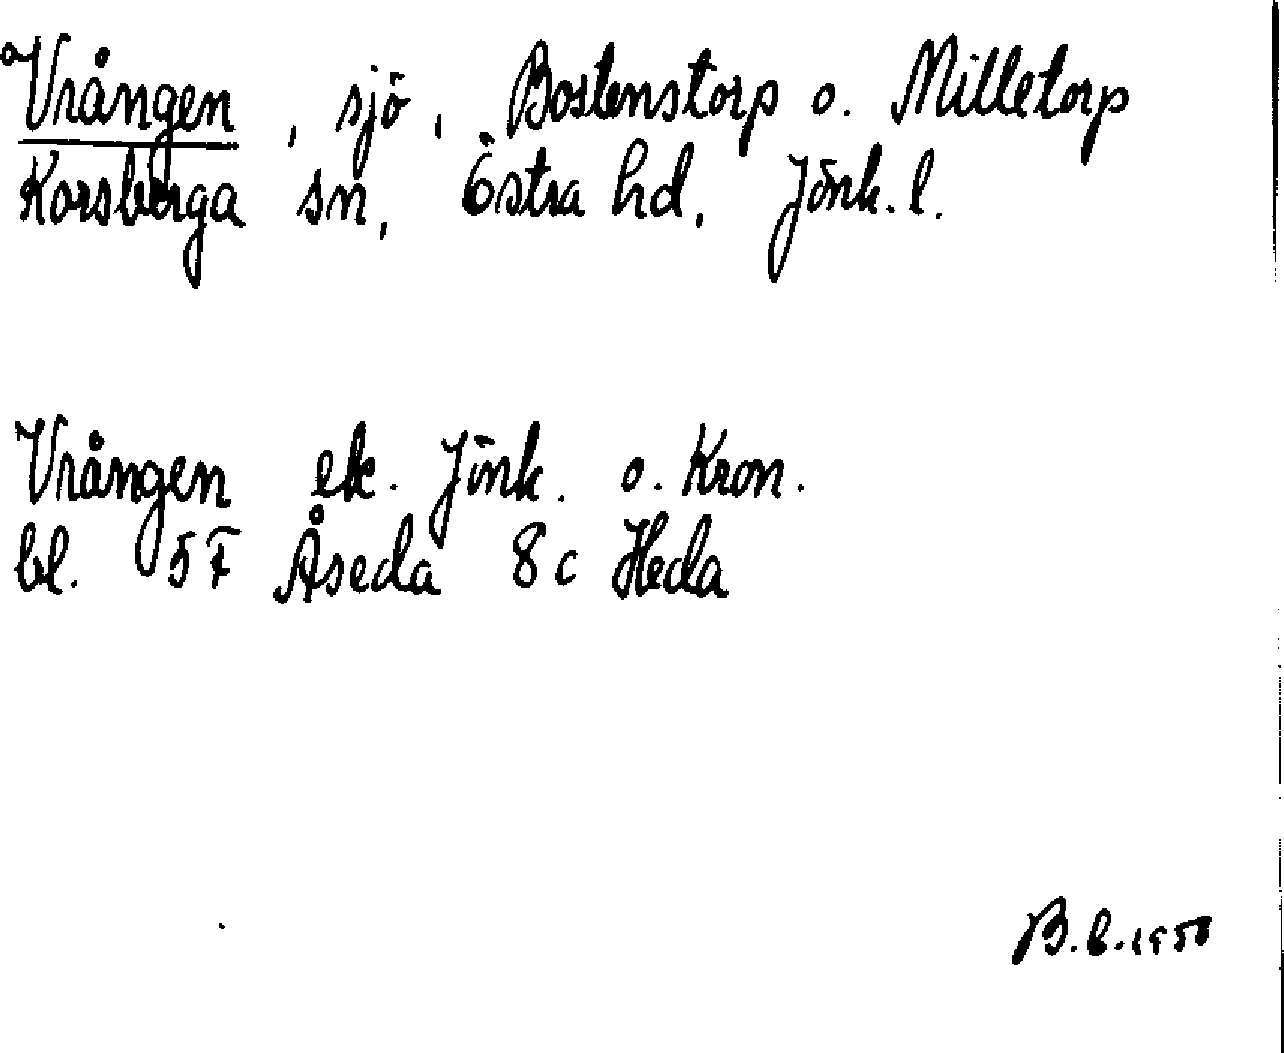 Vrången, sjö, Bostenstorp o. Milletorp
Korsberga sn, Östra hd, Jönk. l.
Vrången ek. Jönk. o. Kron.
bl. 5 F Åseda 8 c Heda